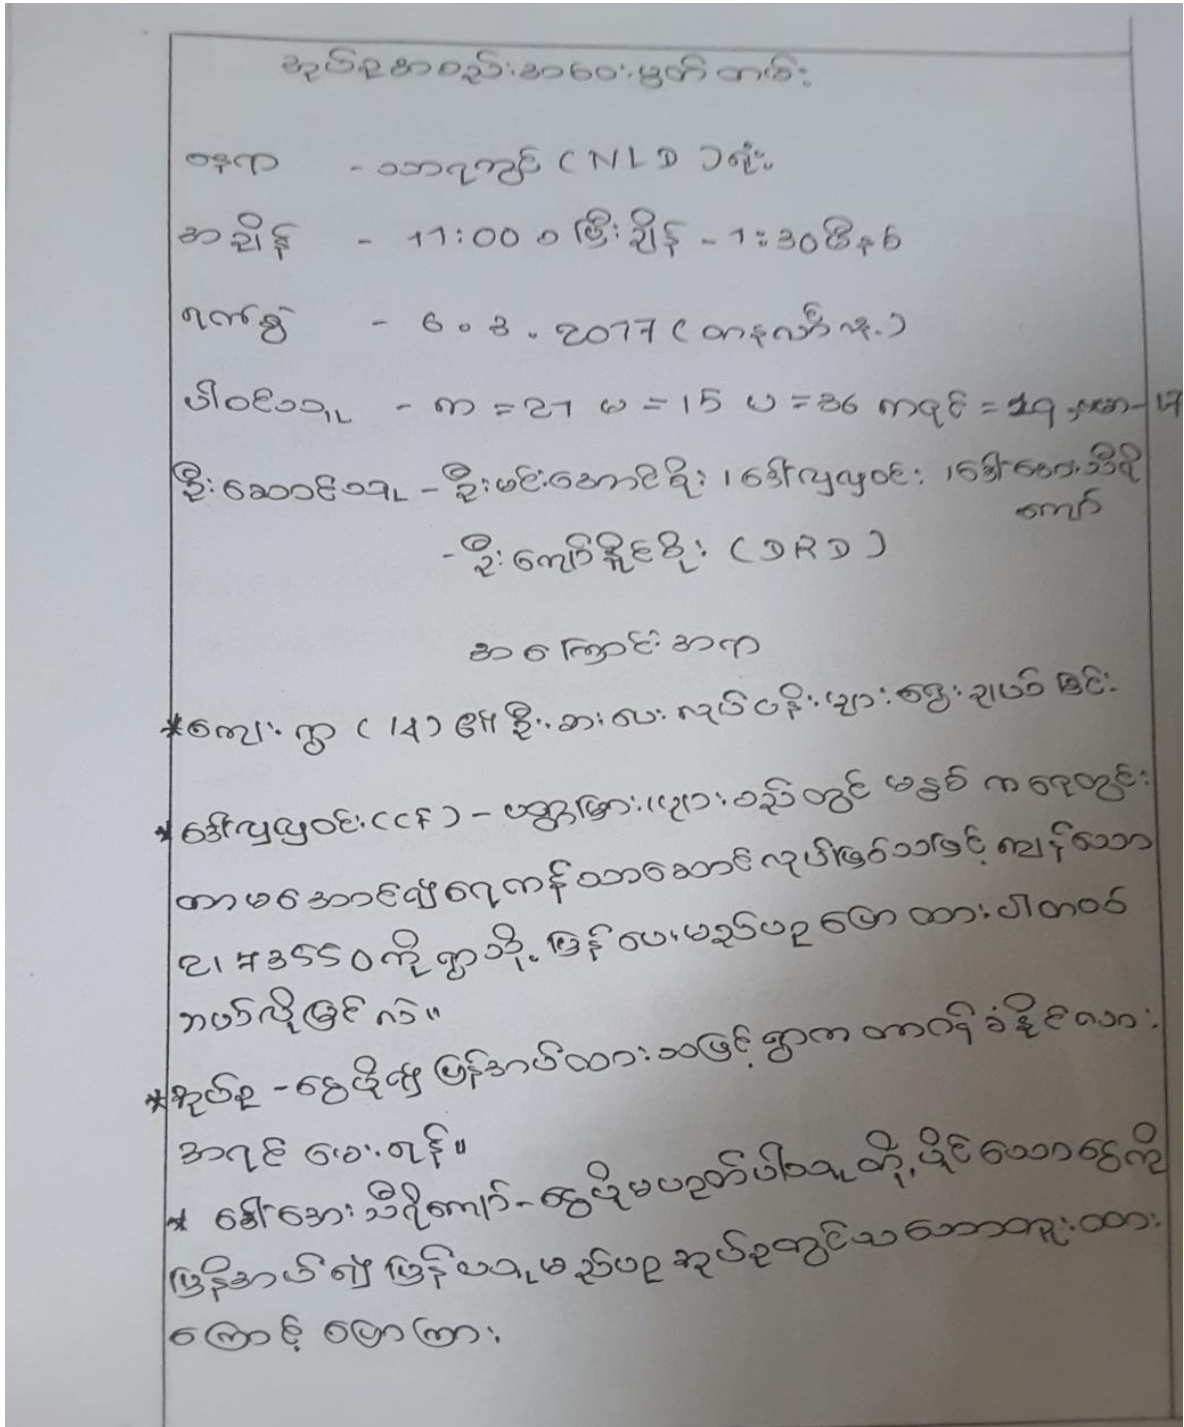 အုပ်စုအစည်းအဝေးမှတ်တမ်း
နေရာ - သာရကွင်း (NLD) ရုံး
အချိန် - 11:00 ပြီးချိန် - 1:30 မိနစ်
ရက်စွဲ - 6.3.2017 (တနင်္လာနေ့)
ပါဝင်သူ - က = 21 မ = 15 ပ = 36
ဦးဆောင်သူ - ဦးမင်းအောင်စိုး၊ ဒေါ်လှလှဝင်း၊ ဒေါ်အေးသီရိ
ကျော်
- ဦးကျော်နိုင်စိုး (DRD)
အကြောင်းအရာ
*ကျေးရွာ (14) ၏ ဦးစားပေးလုပ်ငန်းများ ရွေးချယ်ခြင်း
*ဒေါ်လှလှဝင်း (CF) - တွင် မနှစ်က
တာမအောင်၍ ရေကန်သာဆောင်လုပ်ဖြစ်သဖြင့် ကျန်သော
2173550 ကို ရွာသို့ ပြန်ပေးမည်ဟု ပြောထားပါတယ်
ဘယ်လိုမြင်လဲ။
*အုပ်စု - ငွေပို၍ ပြန်အပ်ထားသဖြင့် ရွာက တာဝန်ခံနိုင်သော
အရင်ပေးရန်။
* ဒေါ်အေးသီရိကျော် - ငွေပိုမဟုတ်ပါသူတို့ပိုင်သောငွေကို
ပြန်အပ်၍ ပြန်ယူမည်ဟု အုပ်စုတွင်သဘောတူထား
ကြောင့် ပြောကြား